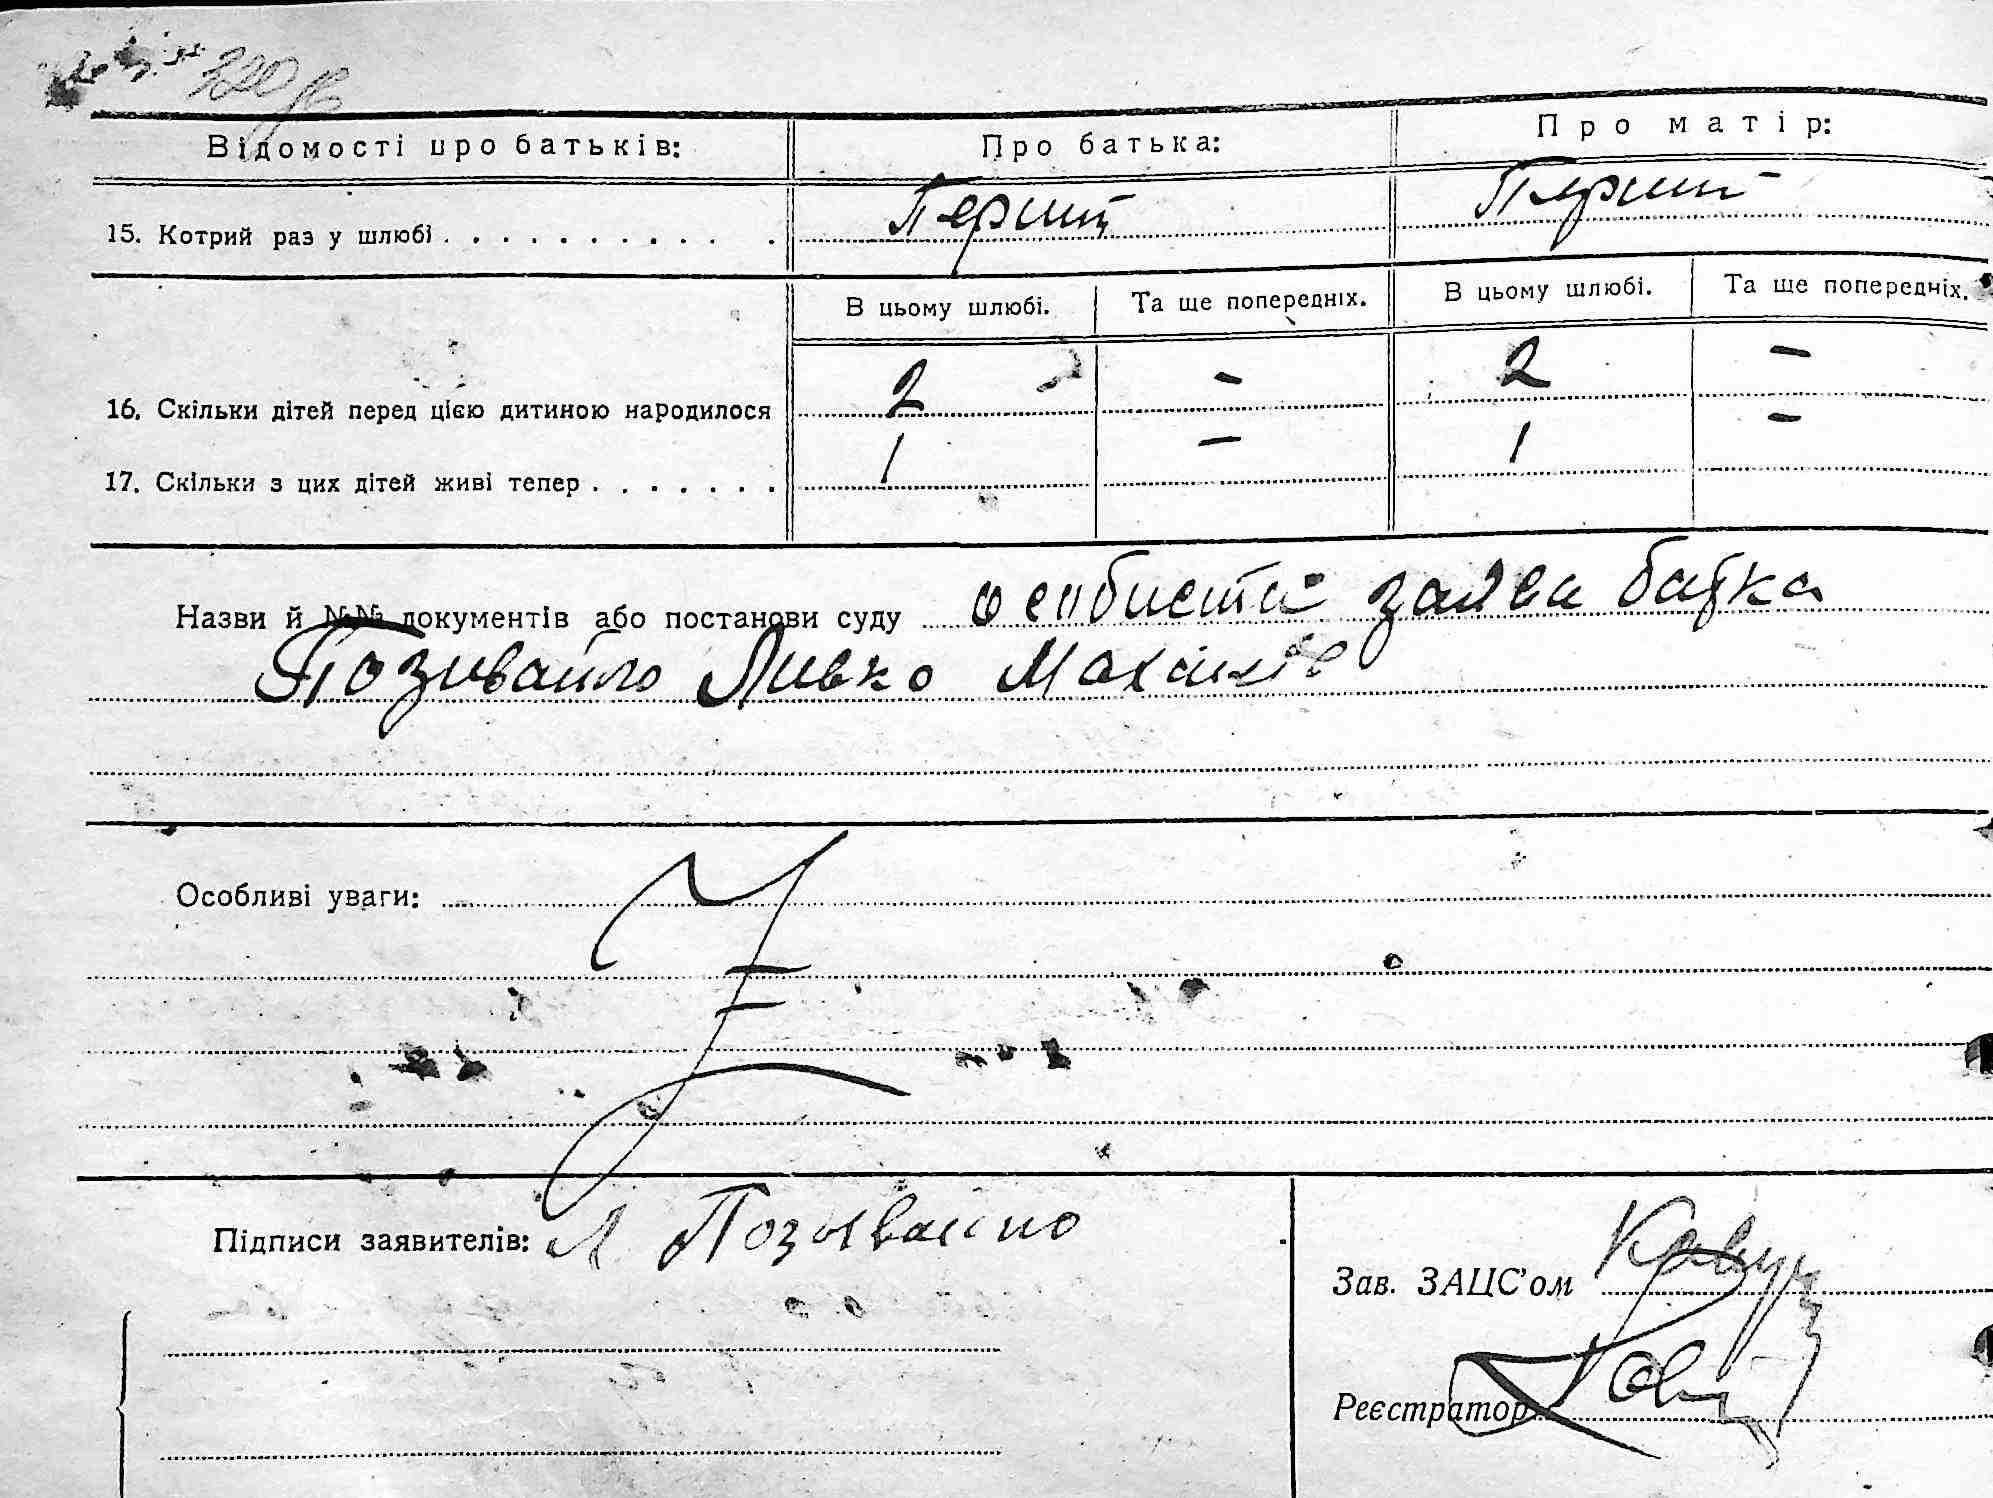 220
Відомості про батьків: Про батька: Про матір:
15. Котрий раз у шлюбі . . . . . . . . . . . Перший Перший
В цьому шлюбі. Та ще попередніх. В цьому шлюбі. Та ще попередніх.
16. Скільки дітей перед цією дитиною народилося 2 - 2 -
17. Скільки з цих дітей живі тепер . . . . . . . 1 - 1 -
Назви й №№ документів або постанови суду особиста заява батька
Позивайло Ливко
Особливі уваги:
Підписи заявителів: Л Позывайло
Зав. ЗАЦС'ом Кавун
Реєстратор